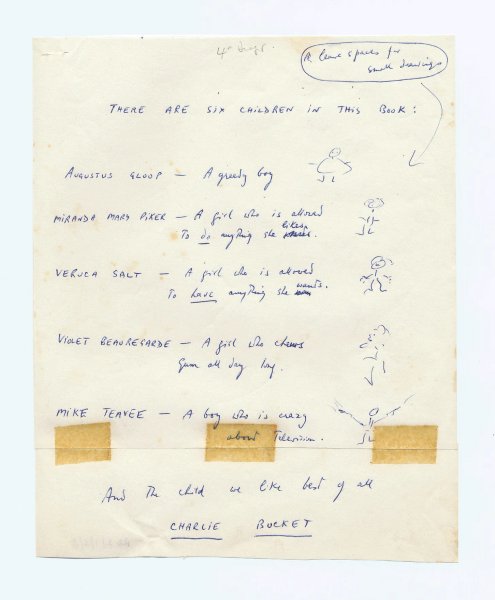 leave spaces for
small drawings
THERE ARE SIX CHILDREN IN THIS BOOK:
AUGUSTUS GLOOP — A greedy boy
MIRANDA MARY PIKER — A girl who is allowed
To do anything she likes.
VERUCA SALT — A girl who is allowed
To have anything she wants.
VIOLET BEAUREGARDE — A girl who chews
Gum all day long.
MIKE TEAVEE — A boy who is crazy
about Television.
And The child we like best of all
CHARLIE BUCKET